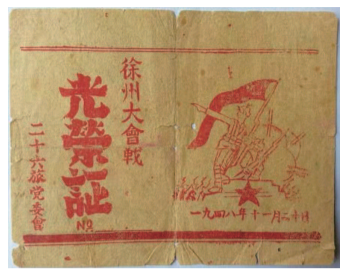 徐州大會戰
光榮証
NO
二十六旅党委會
一九四八年十一月二十日